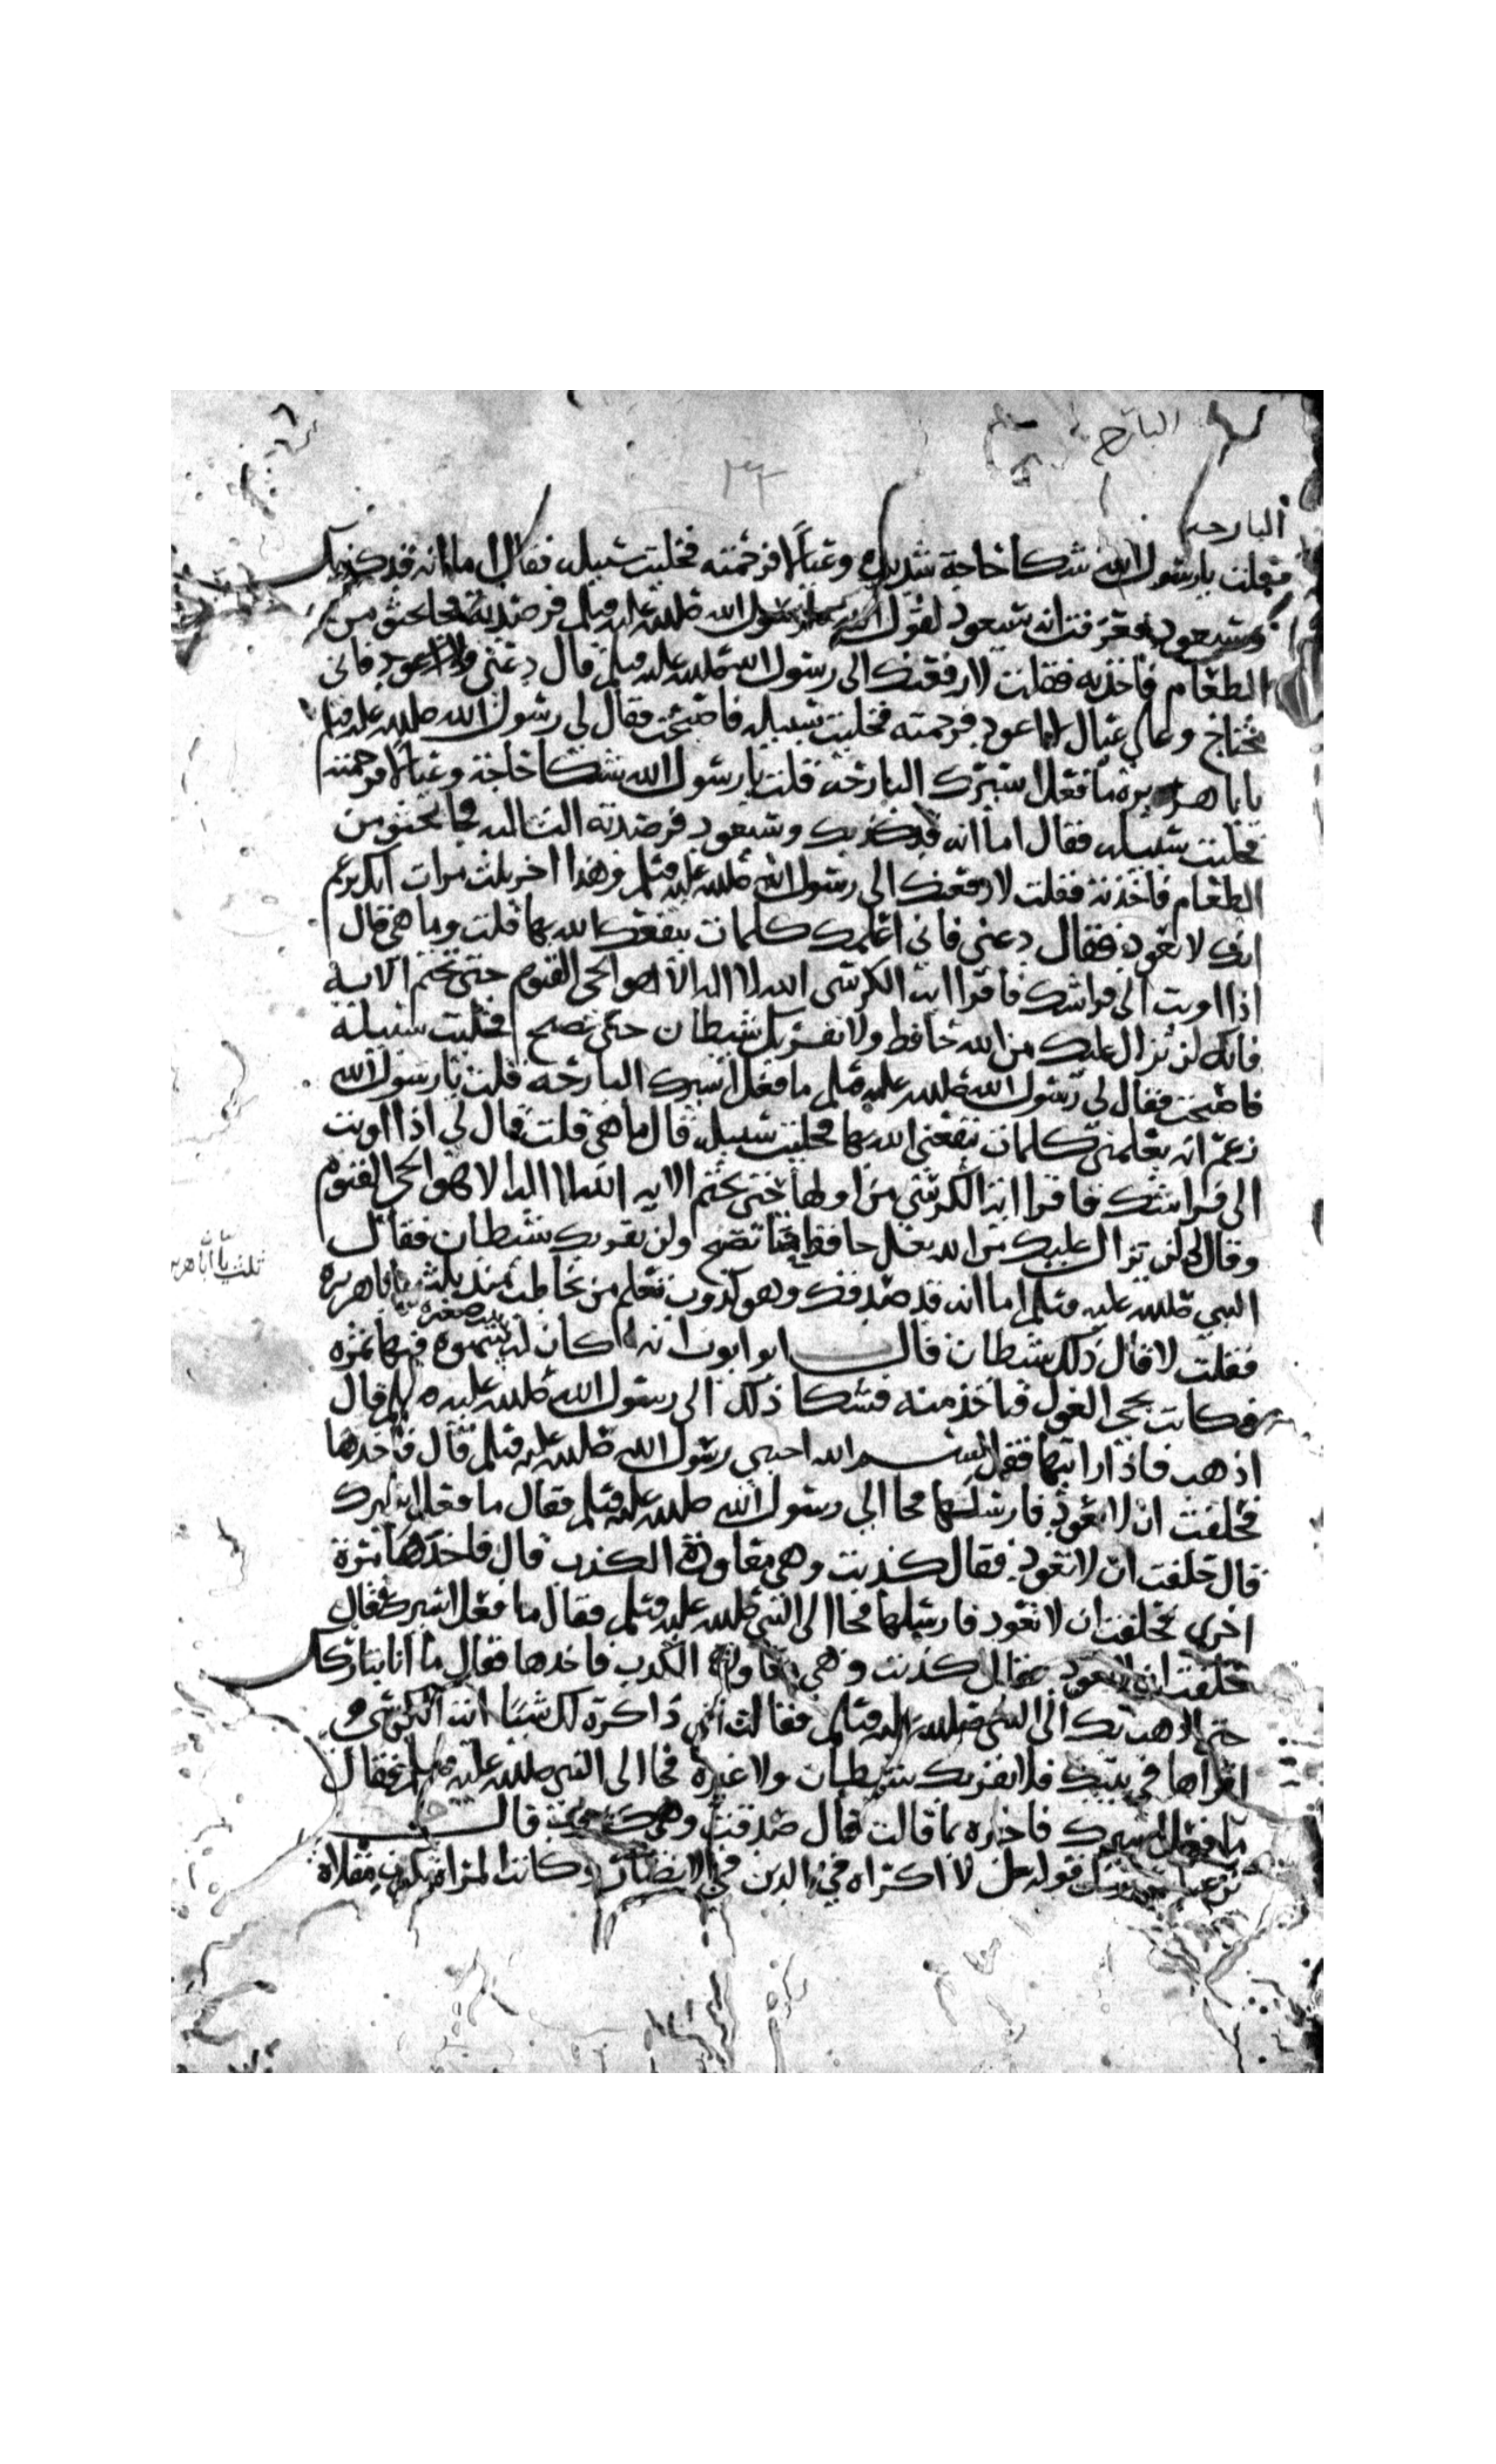 البارحه
البارحه
فقلت يا رسول الله شكا حاجة شديدة وعيالا فرحمته فخليت سبيله فقال اما انه قد كذبك
وسيعود فعرفت انه سيعود لقول رسول الله صلى الله عليه وسلم فرصدته فجا يحثو من
الطعام فاخذته فقلت لارفعنك الى رسول الله صلى الله عليه وسلم قال دعني ولا اعود فاني
محتاج وعلي عيال لا اعود فرحمته فخليت سبيله فاصبحت فقال لي رسول الله صلى الله عليه وسلم
يابا هريره ما فعل اسيرك البارحه قلت يا رسول الله شكا حاجة وعيالا فرحمته
فخليت سبيله فقال اما انه قد كذبك وسيعود فرصدته الثالثه فجا يحثو من
الطعام فاخذته فقلت لارفعنك الى رسول الله صلى الله عليه وسلم وهذا اخر ثلث مرات انك تزعم
انك لا تعود فقال دعني فاني اعلمك كلمات ينفعك الله بها قلت وما هي قال
اذا اويت الى فراشك فاقرا اية الكرسي الله لا اله الا هو الحي القيوم حتى تختم الاية
فانك لن يزال عليك من الله حافظ ولا يقربك شيطان حتى تصبح فخليت سبيله
فاصبحت فقال لي رسول الله صلى الله عليه وسلم ما فعل اسيرك البارحه قلت يا رسول الله
زعم انه يعلمني كلمات ينفعني الله بها فخليت سبيله قال ما هي قلت قال لي اذا اويت
الى فراشك فاقرا اية الكرسي من اولها حتى تختم الايه الله لا اله الا هو الحي القيوم
وقال لي لن يزال عليك من الله حافظ حتا تصبح ولن يقربك شيطان فقال
النبي صلى الله عليه وسلم اما انه قد صدقك وهو كذوب تعلم من تخاطب منذ ثلث يا با هريره
ثلث يا ابا هرير
فقلت لا قال ذلك شيطان قال ابو ايوب انه كان له سهوه فيها تمره
وكانت تجي الغول فتاخذ منه فشكا ذلك الى رسول الله صلى الله عليه وسلم قال
اذهب فاذا رايتها فقل بسم الله اجيبي رسول الله صلى الله عليه وسلم قال فاخذها
فحلفت ان لا تعود فارسلها فجا الى رسول الله صلى الله عليه وسلم فقال ما فعل اسيرك
قال حلفت ان لا تعود فقال كذبت وهي معاودة الكذب قال فاخذها مرة
اخرى فحلفت ان لا تعود فارسلها فجا الى النبي صلى الله عليه وسلم فقال ما فعل اسيرك فقال
حلفت ان لا تعود فقال كذبت وهي معاودة الكذب فاخذها فقال ما انا بتاركك
حتى اذهب بك الى النبي صلى الله عليه وسلم فقالت اني ذاكرة لك شيئا اية الكرسي
اقراها في بيتك فلا يقربك شيطان ولا غيره فجا الى النبي صلى الله عليه وسلم فقال
ما فعل اسيرك فاخبره بما قالت قال صدقت وهي كذوب قال
قوله عز لا اكراه في الدين في الانصار وكانت المراة تكون مقلاة